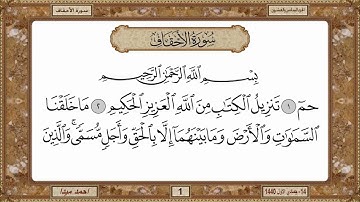 سورة الأحقاف
سُورَةُ الأَحْقَافِ
بِسْمِ اللَّهِ الرَّحْمَٰنِ الرَّحِيمِ
حمٓ ١ تَنزِيلُ الْكِتَابِ مِنَ اللَّهِ الْعَزِيزِ الْحَكِيمِ ٢ مَا خَلَقْنَا
السَّمَاوَاتِ وَالْأَرْضَ وَمَا بَيْنَهُمَا إِلَّا بِالْحَقِّ وَأَجَلٍ مُّسَمًّى ۚ وَالَّذِينَ
14- جمادي الأول 1440
1